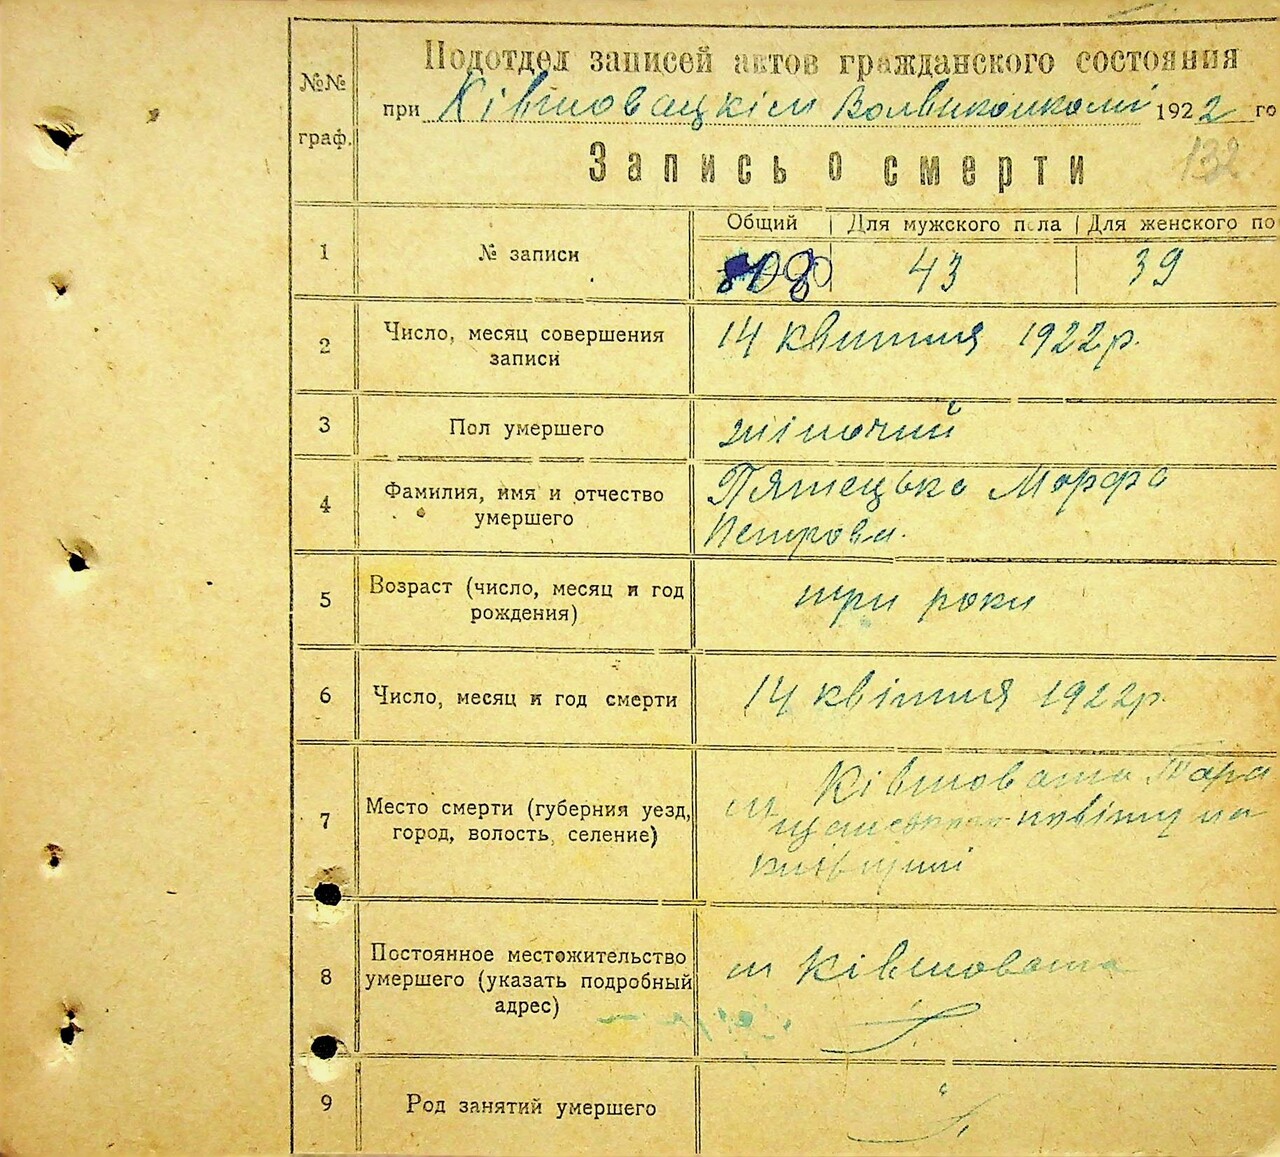 Подотдел записей актов гражданского состояния
при Ківшовацкім Волвиконкомі 1922 го
132
Запись о смерти
№№ граф.
Общий | Для мужского пола | Для женского по
1 № записи 43 39
2 Число, месяц совершения записи
14 квитня 1922 р.
3 Пол умершего жіночий
4 Фамилия, имя и отчество умершего
Пятецька Марфа
Петрова.
5 Возраст (число, месяц и год рождения)
три роки
6 Число, месяц и год смерти 14 квітня 1922 р.
7 Место смерти (губерния уезд, город, волость, селение)
м Ківшовата Тара
щанського повіту на
Київщині
8 Постоянное местожительство умершего (указать подробный адрес)
м Ківшовата
9 Род занятий умершего